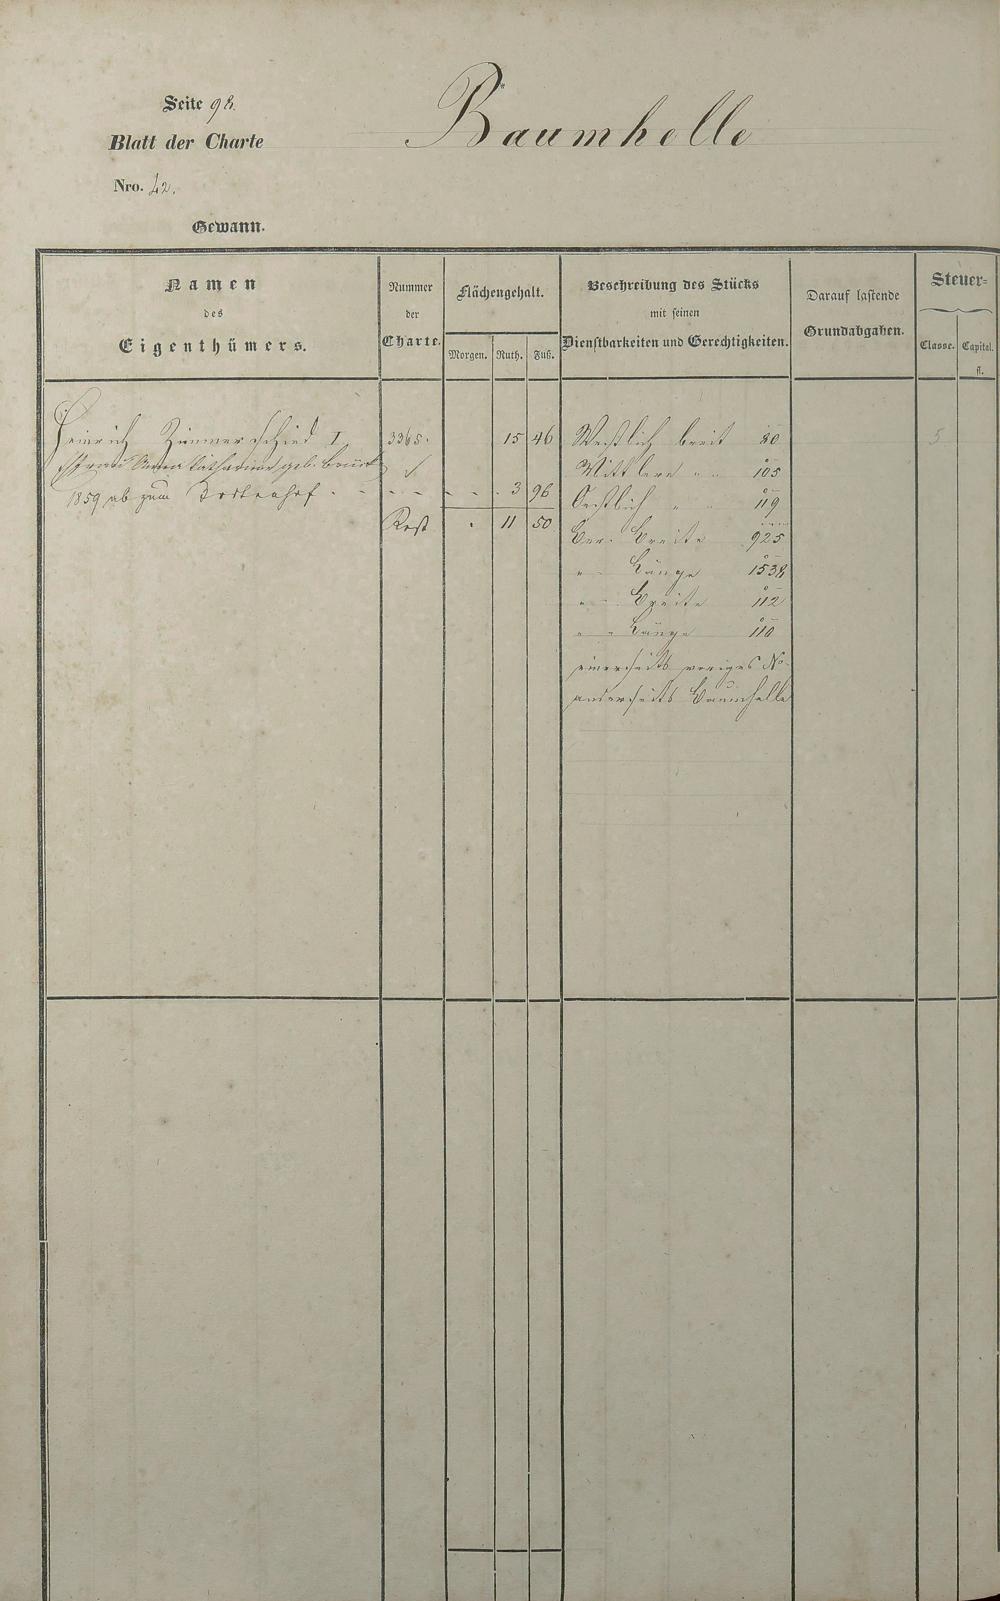 Seite 98.
Baumhelle
Blatt der Charte
Nro. 42.
Gewann.
Namen
des
Eigenthümers.
Nummer
der
Charte.
Flächengehalt.
Morgen. Ruth. Fuß.
Beschreibung des Stücks
mit seinen
Dienstbarkeiten und Gerechtigkeiten.
Darauf lastende
Grundabgaben.
Steuer-
Classe. Capital.
fl.
Heinrich Zimmerschied I 3365. 15 46 Westlich breit 80 5
Anna Catharine geb. Mittlere " " 105
1859 ab zum - - - - - - 3 96 Oestlich " " 119
Rest . 11 50 Ber. Breite 925
" - Länge 1538
" - Breite 112
" " Länge 110
einerseits voriges No.
anderseits Baumhelle